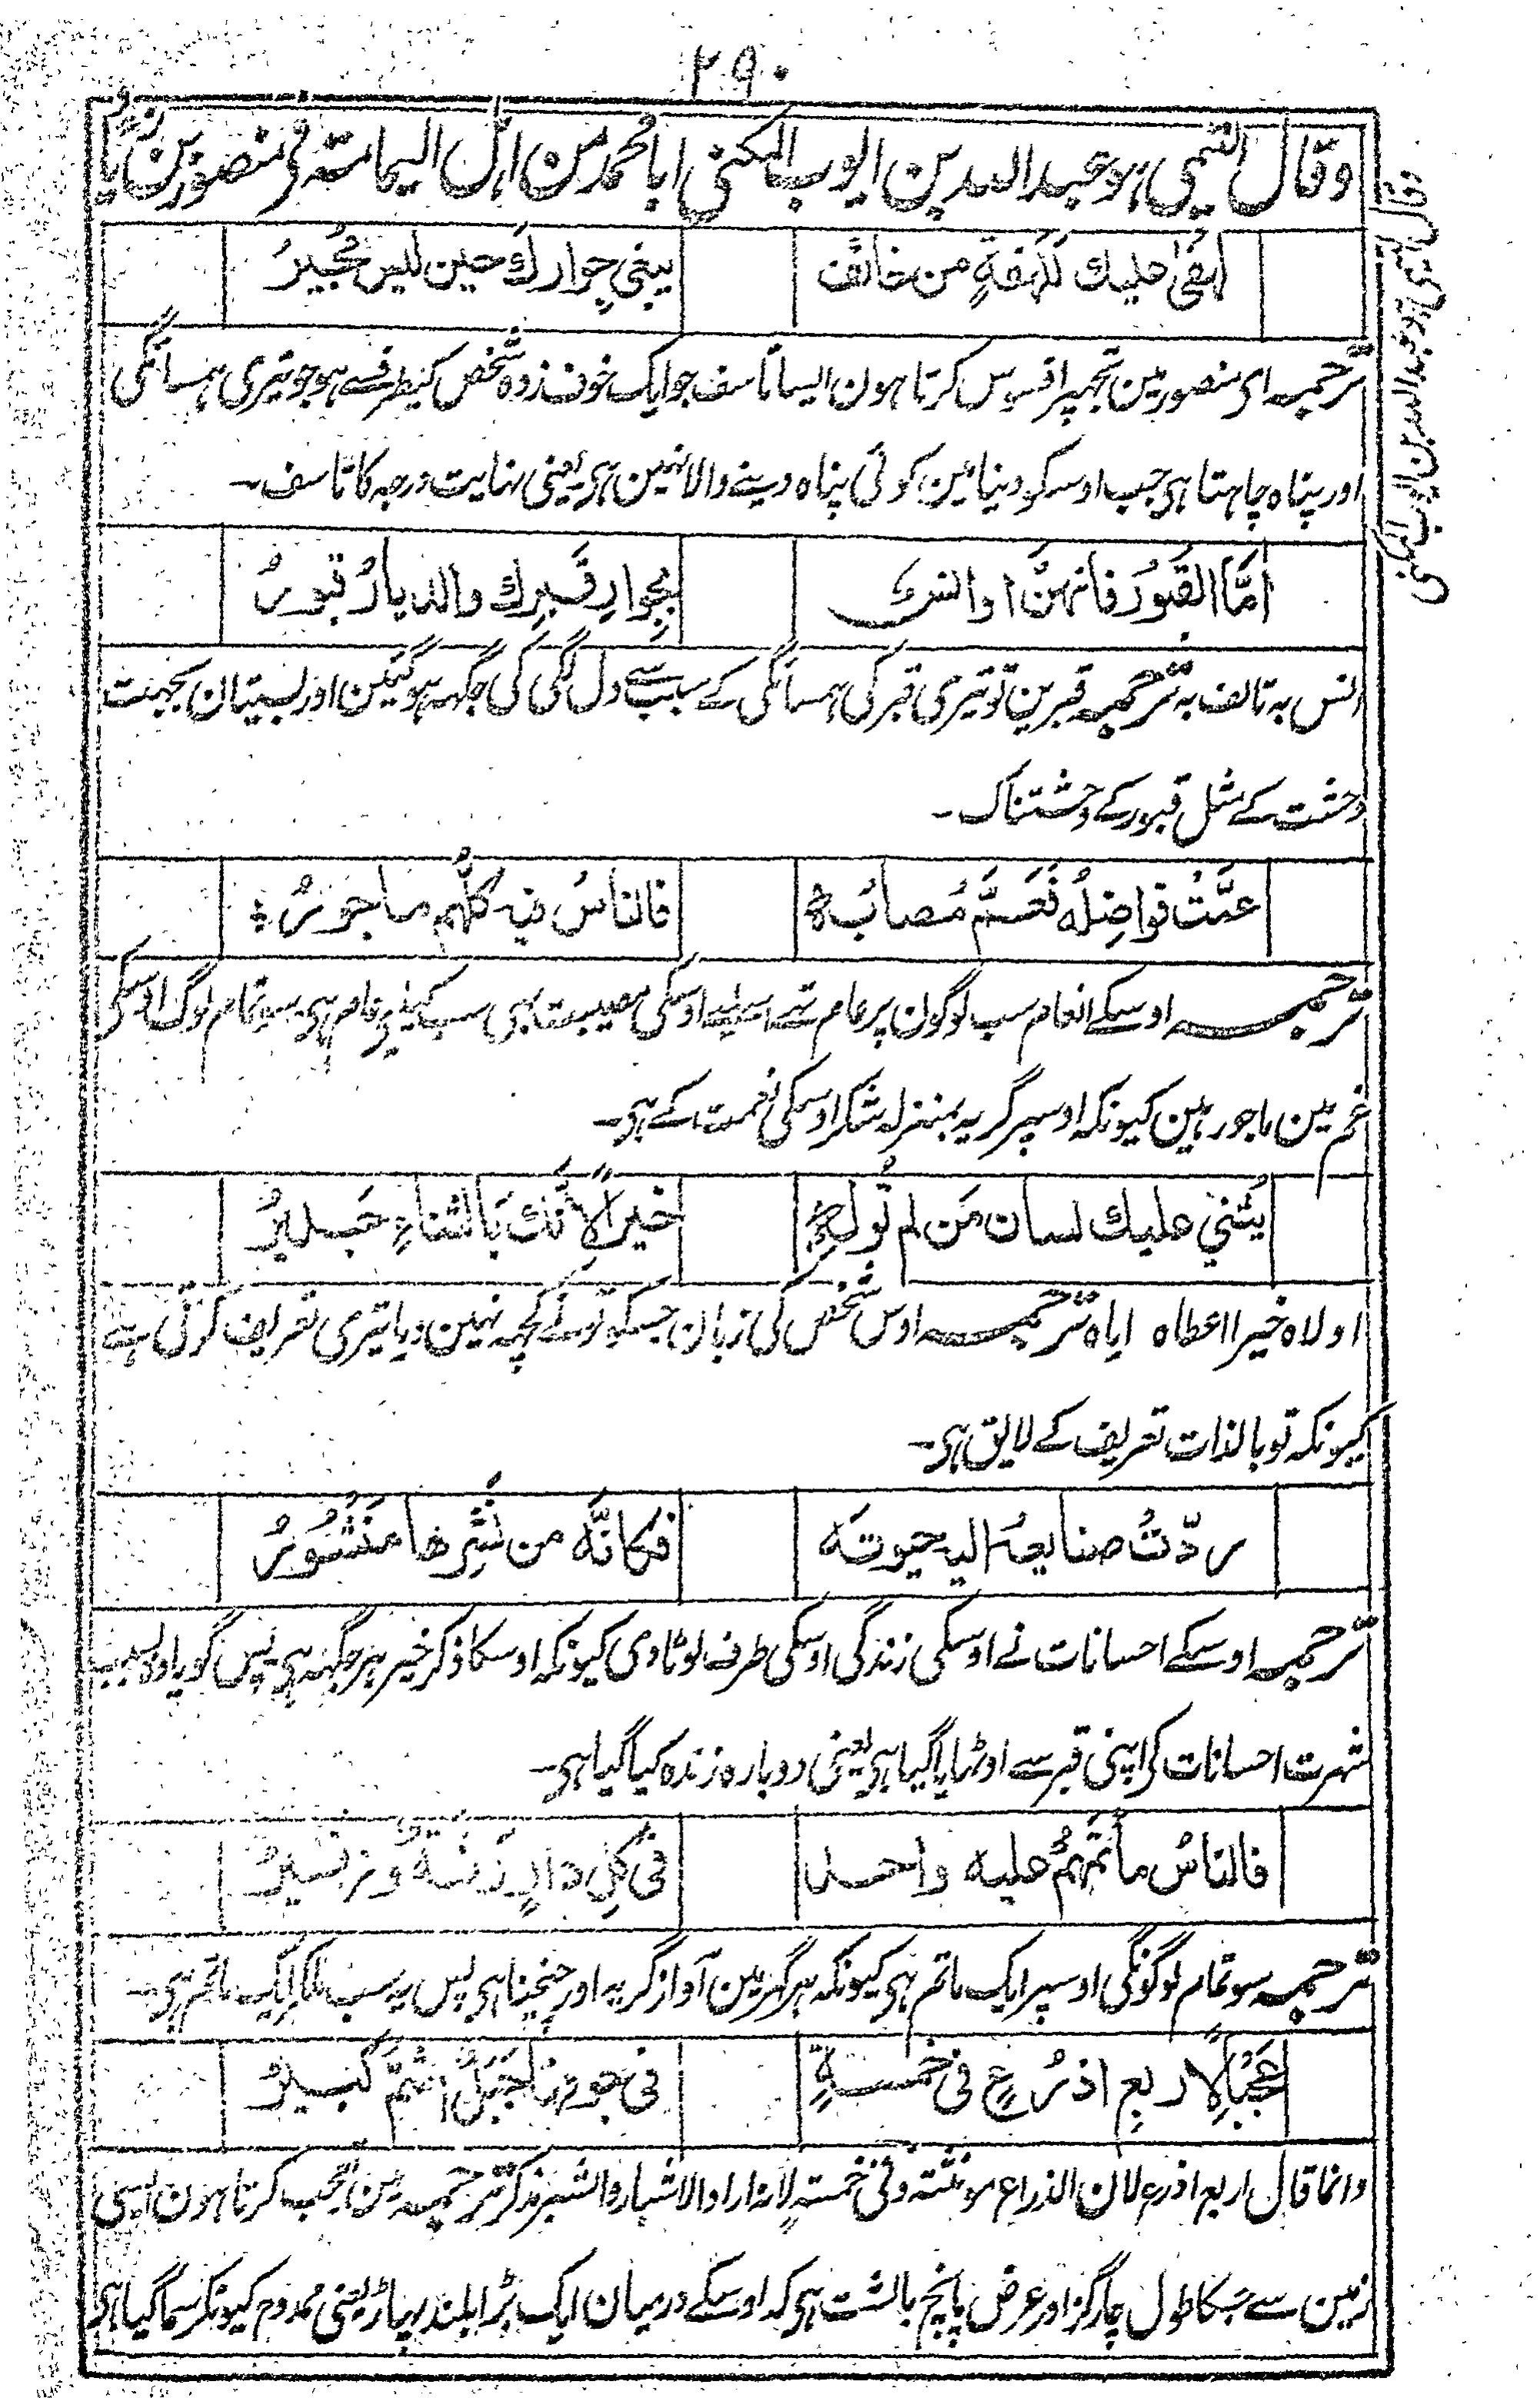 ۲۹۰
وقال التیمی ہو عبد اللہ بن ایوب المکنی ابا محمد من اہل الیمامتہ فی منصور بن زیاد
لَهَفِىْ عليك لِلَهْفَةٍ من خائفٍ
يبغى جوارك حين ليس مُجيرُ
ترجمہ ای منصور مین تجھپر افسوس کرتا ہون ایسا تأسف جو ایک خوف زدہ شخص کیطرفسے ہو جو تیری ہمسائگی
اور پناہ چاہتا ہی جب اوسکو دنیا مین کوئی پناہ دینے والا نہین ہی یعنی نہایت درجہ کا تأسف۔
اَمَّا القبُوُرُ فانهنَّ اوانسٌ
بِجِوارِ قَبِرك والديارُ قبورُ
انس بہ تالف بہ ترجمہ قبرین تو تیری قبر کی ہمسائگی کے سبب سے دل لگی کی جگہہ ہو گئین اور بستیان بجہت
وحشت کے مثل قبور کے وحشتناک۔
عَمَّتْ فواضِلُه فَعَمَّ مُصابُه
فالناسُ فيه كلُّهم ماجورُ
ترجمہ اوسکے انعام سب لوگون پر عام تھے اسلیے اوسکی مصیبت بھی سب کیلیے عام ہی سو تمام لوگ اوسکی
غم مین ماجور ہین کیونکہ اوسپر گریہ بمنزلہ شکر اوسکی نعمت کے ہی۔
يُثنى عليك لسان مَن لم تُولِه
خيرًا لأنَّك بالثناءِ جَديرُ
اولاہ خیرا اعطاہ ایاہ ترجمہ اوس شخص کی زبان جسکو تونے کچھہ نہین دیا تیری تعریف کرتی ہے
کیونکہ تو بالذات تعریف کے لایق ہی۔
ردّتْ صنايعهُ اليه حيوتَه
فكانّه من نَشْرِها مَنْشُورُ
ترجمہ اوسکے احسانات نے اوسکی زندگی اوسکی طرف لوٹا دی کیونکہ اوسکا ذکر خیر ہر جگہہ ہی پس گویا وہ بسبب
شہرت احسانات کی اپنی قبر سے اوٹھایا گیا ہی یعنی دوبارہ زندہ کیا گیا ہی۔
فالناسُ مأتمُهُم عليه واحد
فى كلِ دارٍ رَنّةٌ و زفيرُ
ترجمہ سو تمام لوگونکی اوسپر ایک ماتم ہی کیونکہ ہر گھر مین آواز گریہ اور چیخنا ہی پس یہ سب ملکر ایک ماتم ہی۔
عَجَبًا لِاَربعِ اذرُعٍ فى خمسةٍ
فى جوفها جَبَلٌ اشمُّ كبيرُ
وانما قال اربع اذرع لان الذراع مونثتہ وفی خمستہ لانہ اراد الاشبار والشبر مذکر ترجمہ مین تعجب کرتا ہون ایسی
زمین سے جسکا طول چار گز اور عرض پانچ بالشت ہی کہ اوسکے درمیان ایک بڑا بلند پہاڑ یعنی ممدوح کیونکر سما گیا ہی
وقال التیمی ہو عبد اللہ بن ایوب المکنی